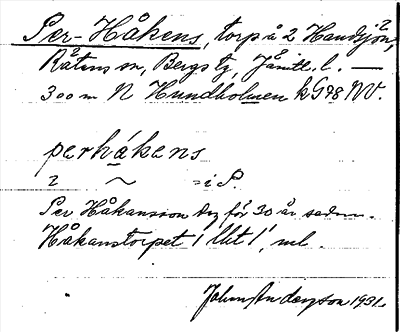 Per-Håkens, torp å 2 Handsjön,
Rätans sn, Bergs tg, Jämtl. l. —
300 m N Hundholmen kG98 NV.
perhákens
2 ~ = i P.
Per Håkansson dog för 30 år sedan.
Håkanstorpet 1/ mtl.
John Andersson 1931.